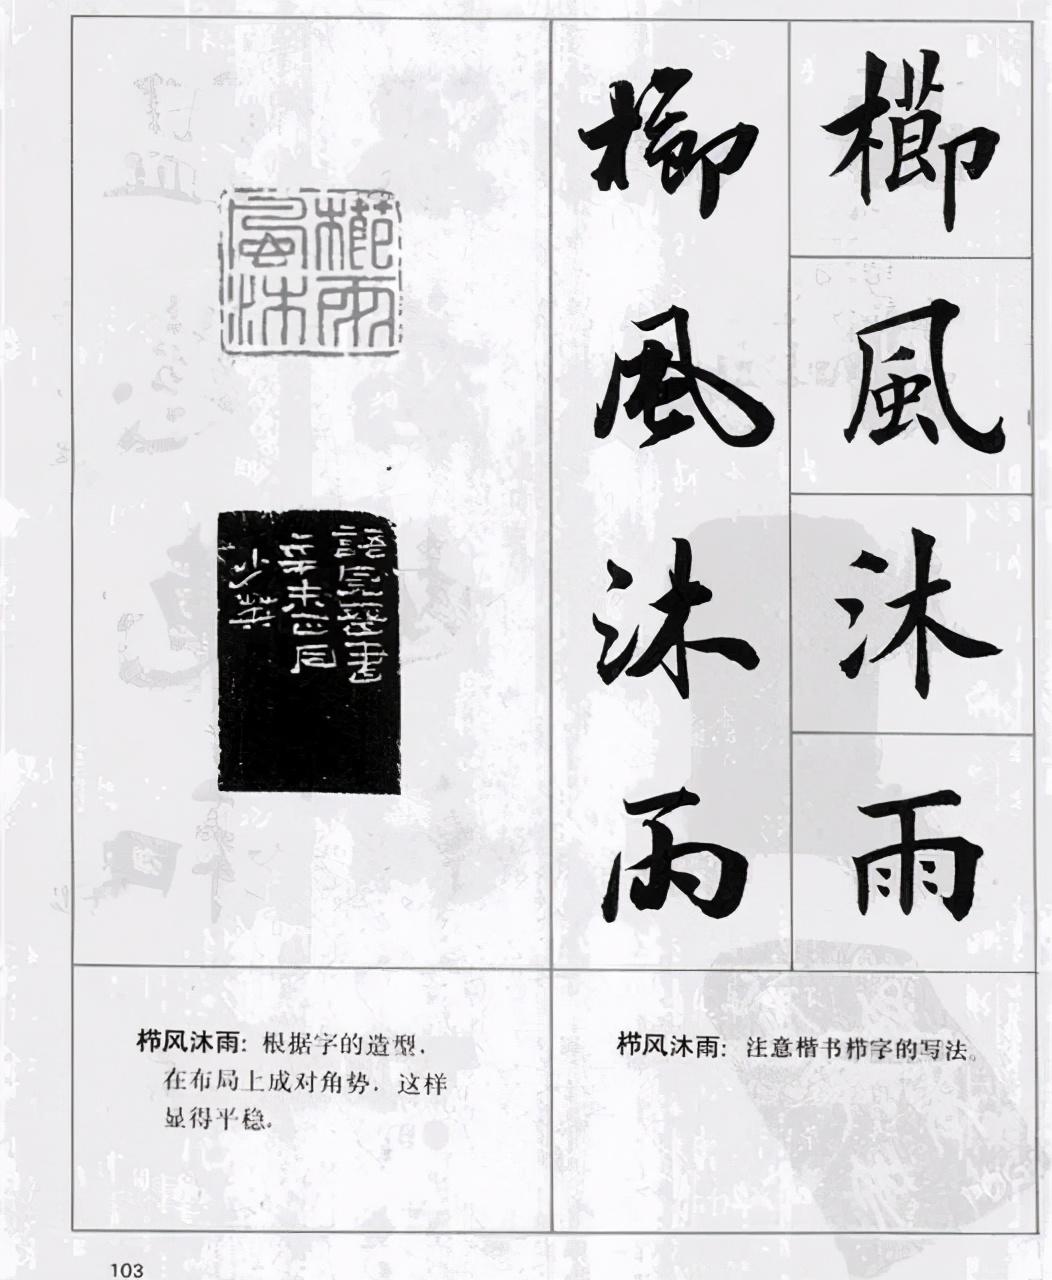 櫛風沐雨
櫛風沐雨
櫛風
沐雨
辛未正月
栉风沐雨：根据字的造型，
在布局上成对角势，这样
显得平稳。
栉风沐雨：注意楷书栉字的写法。
103